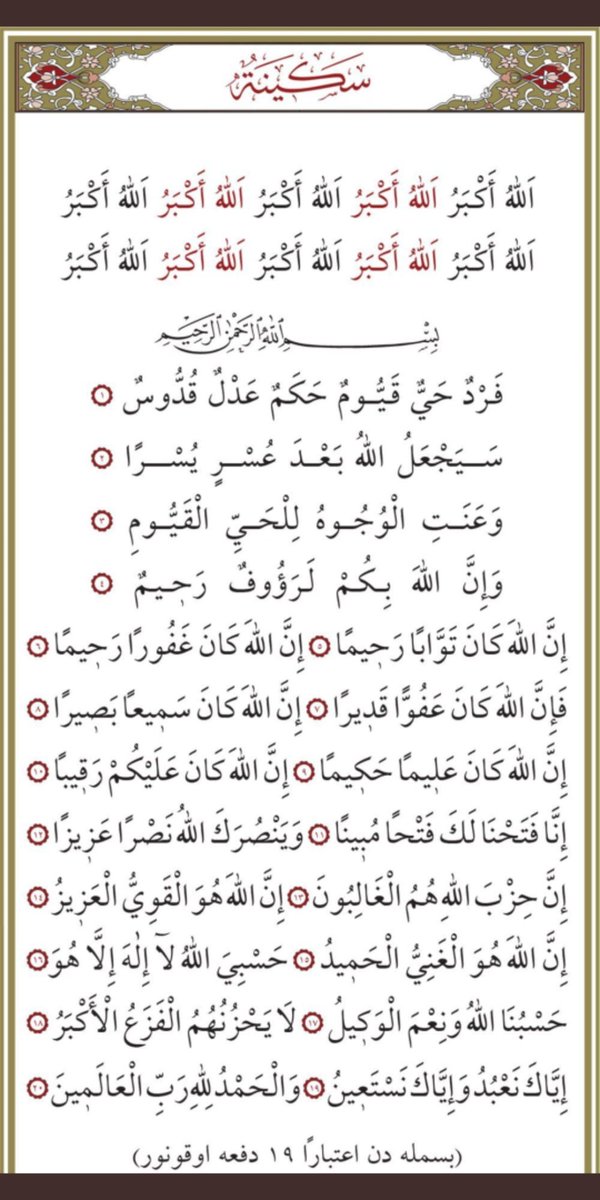 سَكِينَةٌ
اَللّٰهُ أَكْبَرُ اَللّٰهُ أَكْبَرُ اَللّٰهُ أَكْبَرُ اَللّٰهُ أَكْبَرُ اَللّٰهُ أَكْبَرُ
اَللّٰهُ أَكْبَرُ اَللّٰهُ أَكْبَرُ اَللّٰهُ أَكْبَرُ اَللّٰهُ أَكْبَرُ اَللّٰهُ أَكْبَرُ
بِسْمِ اللّٰهِ الرَّحْمٰنِ الرَّحِيمِ
فَرْدٌ حَيٌّ قَيُّومٌ حَكَمٌ عَدْلٌ قُدُّوسٌ ١
سَيَجْعَلُ اللّٰهُ بَعْدَ عُسْرٍ يُسْرًا ٢
وَعَنَتِ الْوُجُوهُ لِلْحَيِّ الْقَيُّومِ ٣
وَإِنَّ اللّٰهَ بِكُمْ لَرَؤُوفٌ رَحِيمٌ ٤
إِنَّ اللّٰهَ كَانَ تَوَّابًا رَحِيمًا ٥ إِنَّ اللّٰهَ كَانَ غَفُورًا رَحِيمًا ٦
فَإِنَّ اللّٰهَ كَانَ عَفُوًّا قَدِيرًا ٧ إِنَّ اللّٰهَ كَانَ سَمِيعًا بَصِيرًا ٨
إِنَّ اللّٰهَ كَانَ عَلِيمًا حَكِيمًا ٩ إِنَّ اللّٰهَ كَانَ عَلَيْكُمْ رَقِيبًا ١٠
إِنَّا فَتَحْنَا لَكَ فَتْحًا مُبِينًا ١١ وَيَنْصُرَكَ اللّٰهُ نَصْرًا عَزِيزًا ١٢
إِنَّ حِزْبَ اللّٰهِ هُمُ الْغَالِبُونَ ١٣ إِنَّ اللّٰهَ هُوَ الْقَوِيُّ الْعَزِيزُ ١٤
إِنَّ اللّٰهَ هُوَ الْغَنِيُّ الْحَمِيدُ ١٥ حَسْبِيَ اللّٰهُ لَآ إِلٰهَ إِلَّا هُوَ ١٦
حَسْبُنَا اللّٰهُ وَنِعْمَ الْوَكِيلُ ١٧ لَا يَحْزُنُهُمُ الْفَزَعُ الْأَكْبَرُ ١٨
إِيَّاكَ نَعْبُدُ وَإِيَّاكَ نَسْتَعِينُ ١٩ وَالْحَمْدُ لِلّٰهِ رَبِّ الْعَالَمِينَ ٢٠
(بسمله دن اعتبارًا ١٩ دفعه اوقونور)